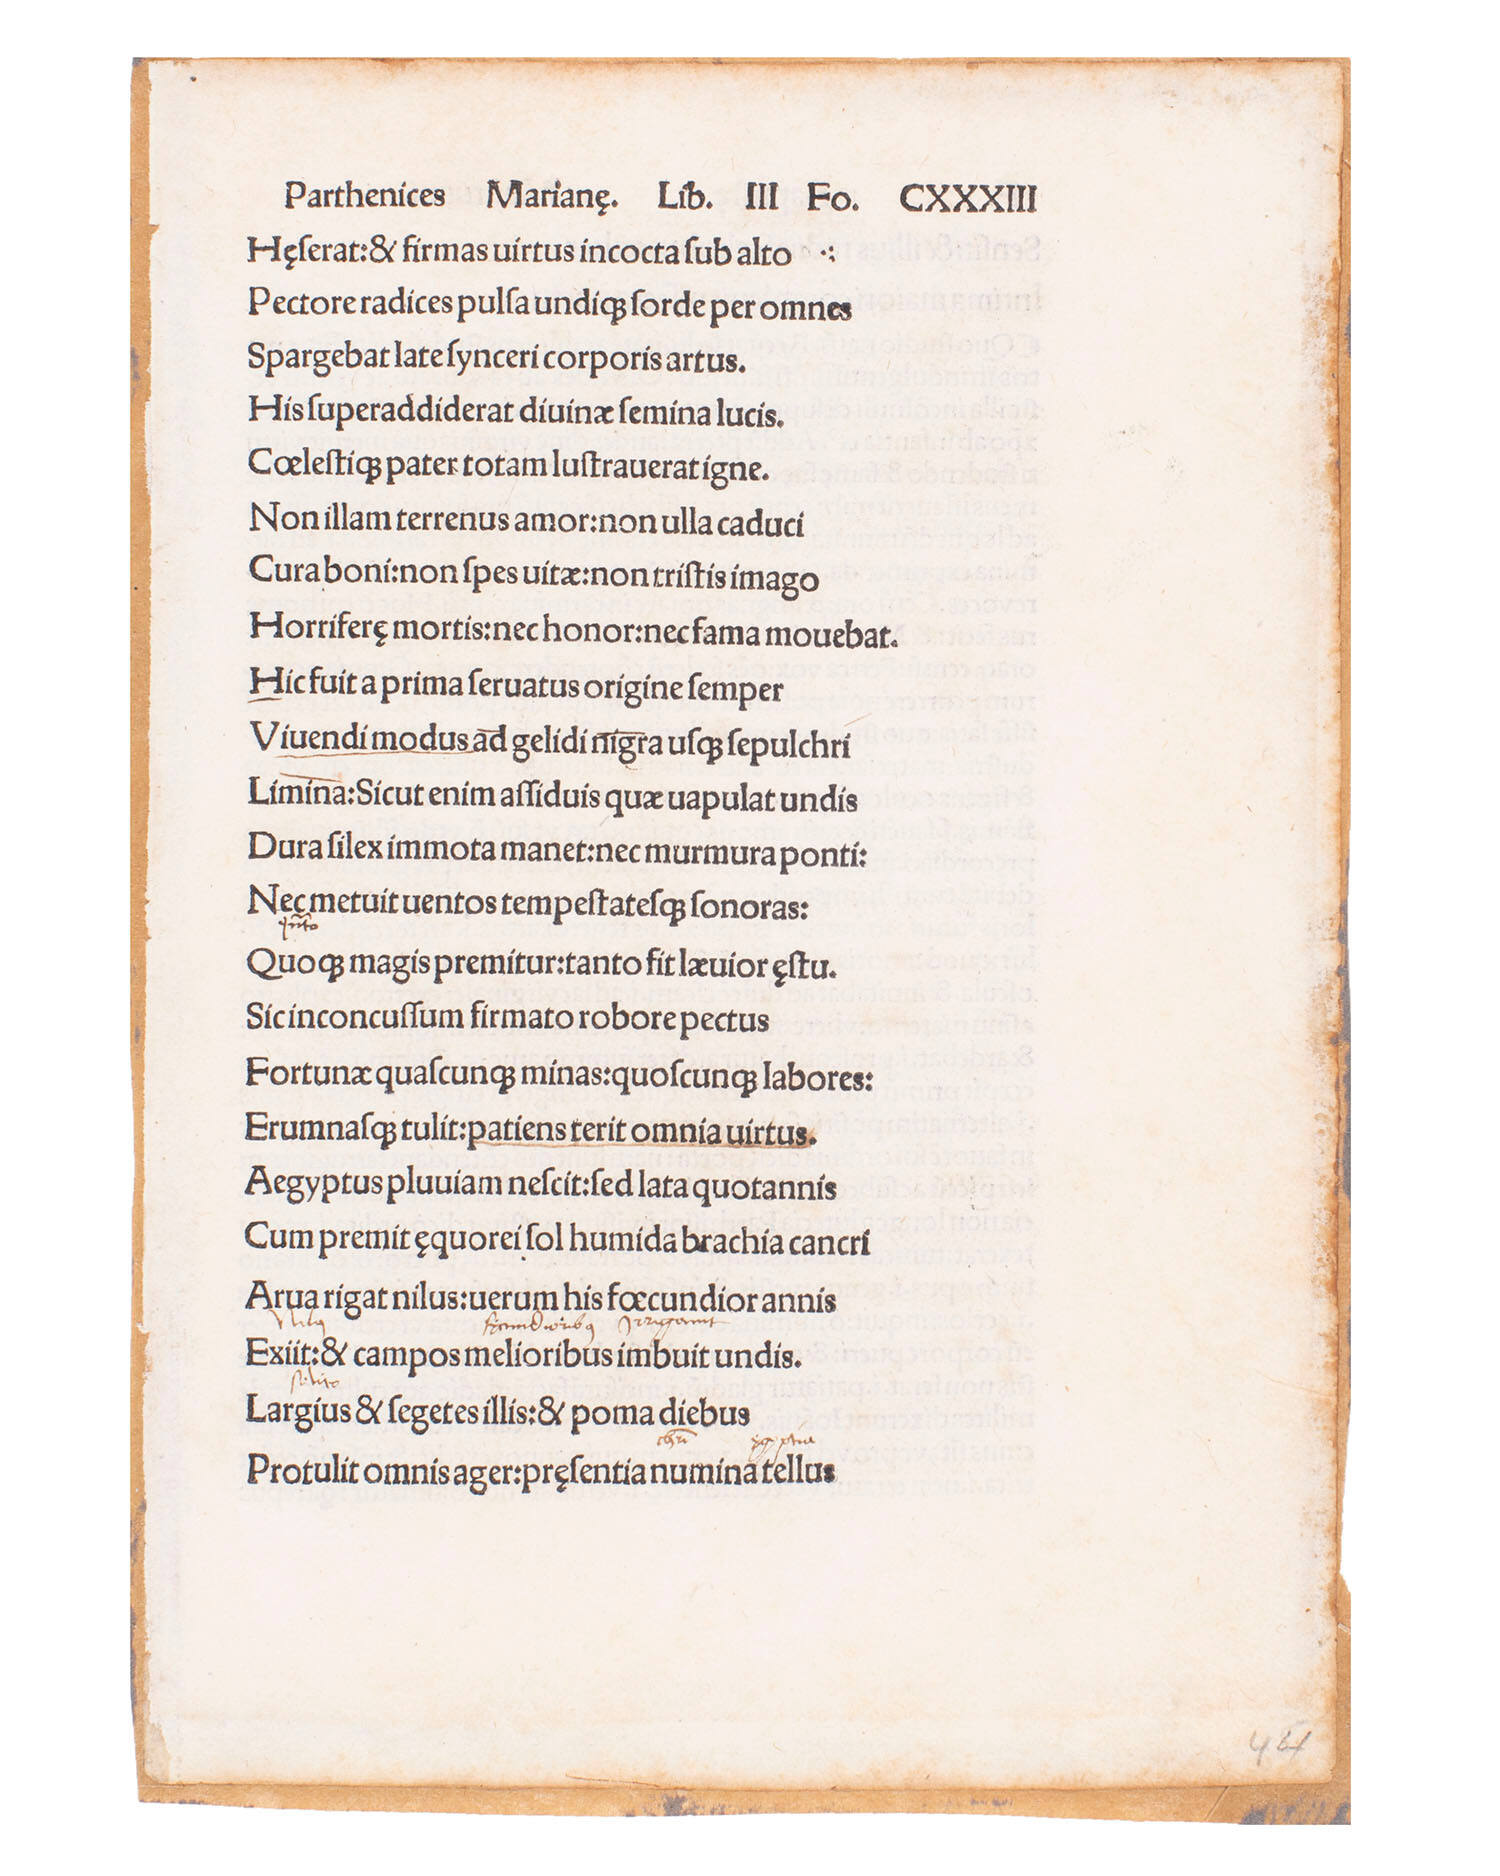 Parthenices Marianę. Lib. III Fo. CXXXIII
Hęſerat:& firmas uirtus incocta ſub alto
Pectore radices pulſa undiqꝫ ſorde per omnes
Spargebat late ſynceri corporis artus.
His ſuperaddiderat diuinæ ſemina lucis.
Cœleſtiqꝫ pater totam luſtrauerat igne.
Non illam terrenus amor:non ulla caduci
Cura boni:non ſpes uitæ:non triſtis imago
Horriferę mortis:nec honor:nec fama mouebat.
Hic fuit a prima ſeruatus origine ſemper
Viuendi modus ad gelidi nigra uſqꝫ ſepulchri
Limina:Sicut enim aſſiduis quæ uapulat undis
Dura ſilex immota manet:nec murmura ponti:
Nec metuit uentos tempeſtateſqꝫ ſonoras:
Quoqꝫ magis premitur:tanto fit læuior ęſtu.
Sic inconcuſſum firmato robore pectus
Fortunæ quaſcunqꝫ minas:quoſcunqꝫ labores:
Erumnaſqꝫ tulit:patiens terit omnia uirtus.
Aegyptus pluuiam neſcit:ſed lata quotannis
Cum premit ęquorei ſol humida brachia cancri
Arua rigat nilus:uerum his fœcundior annis
Exiit:& campos melioribus imbuit undis.
ſolito
Largius & ſegetes illis:& poma diebus
Protulit omnis ager:pręſentia numina tellus